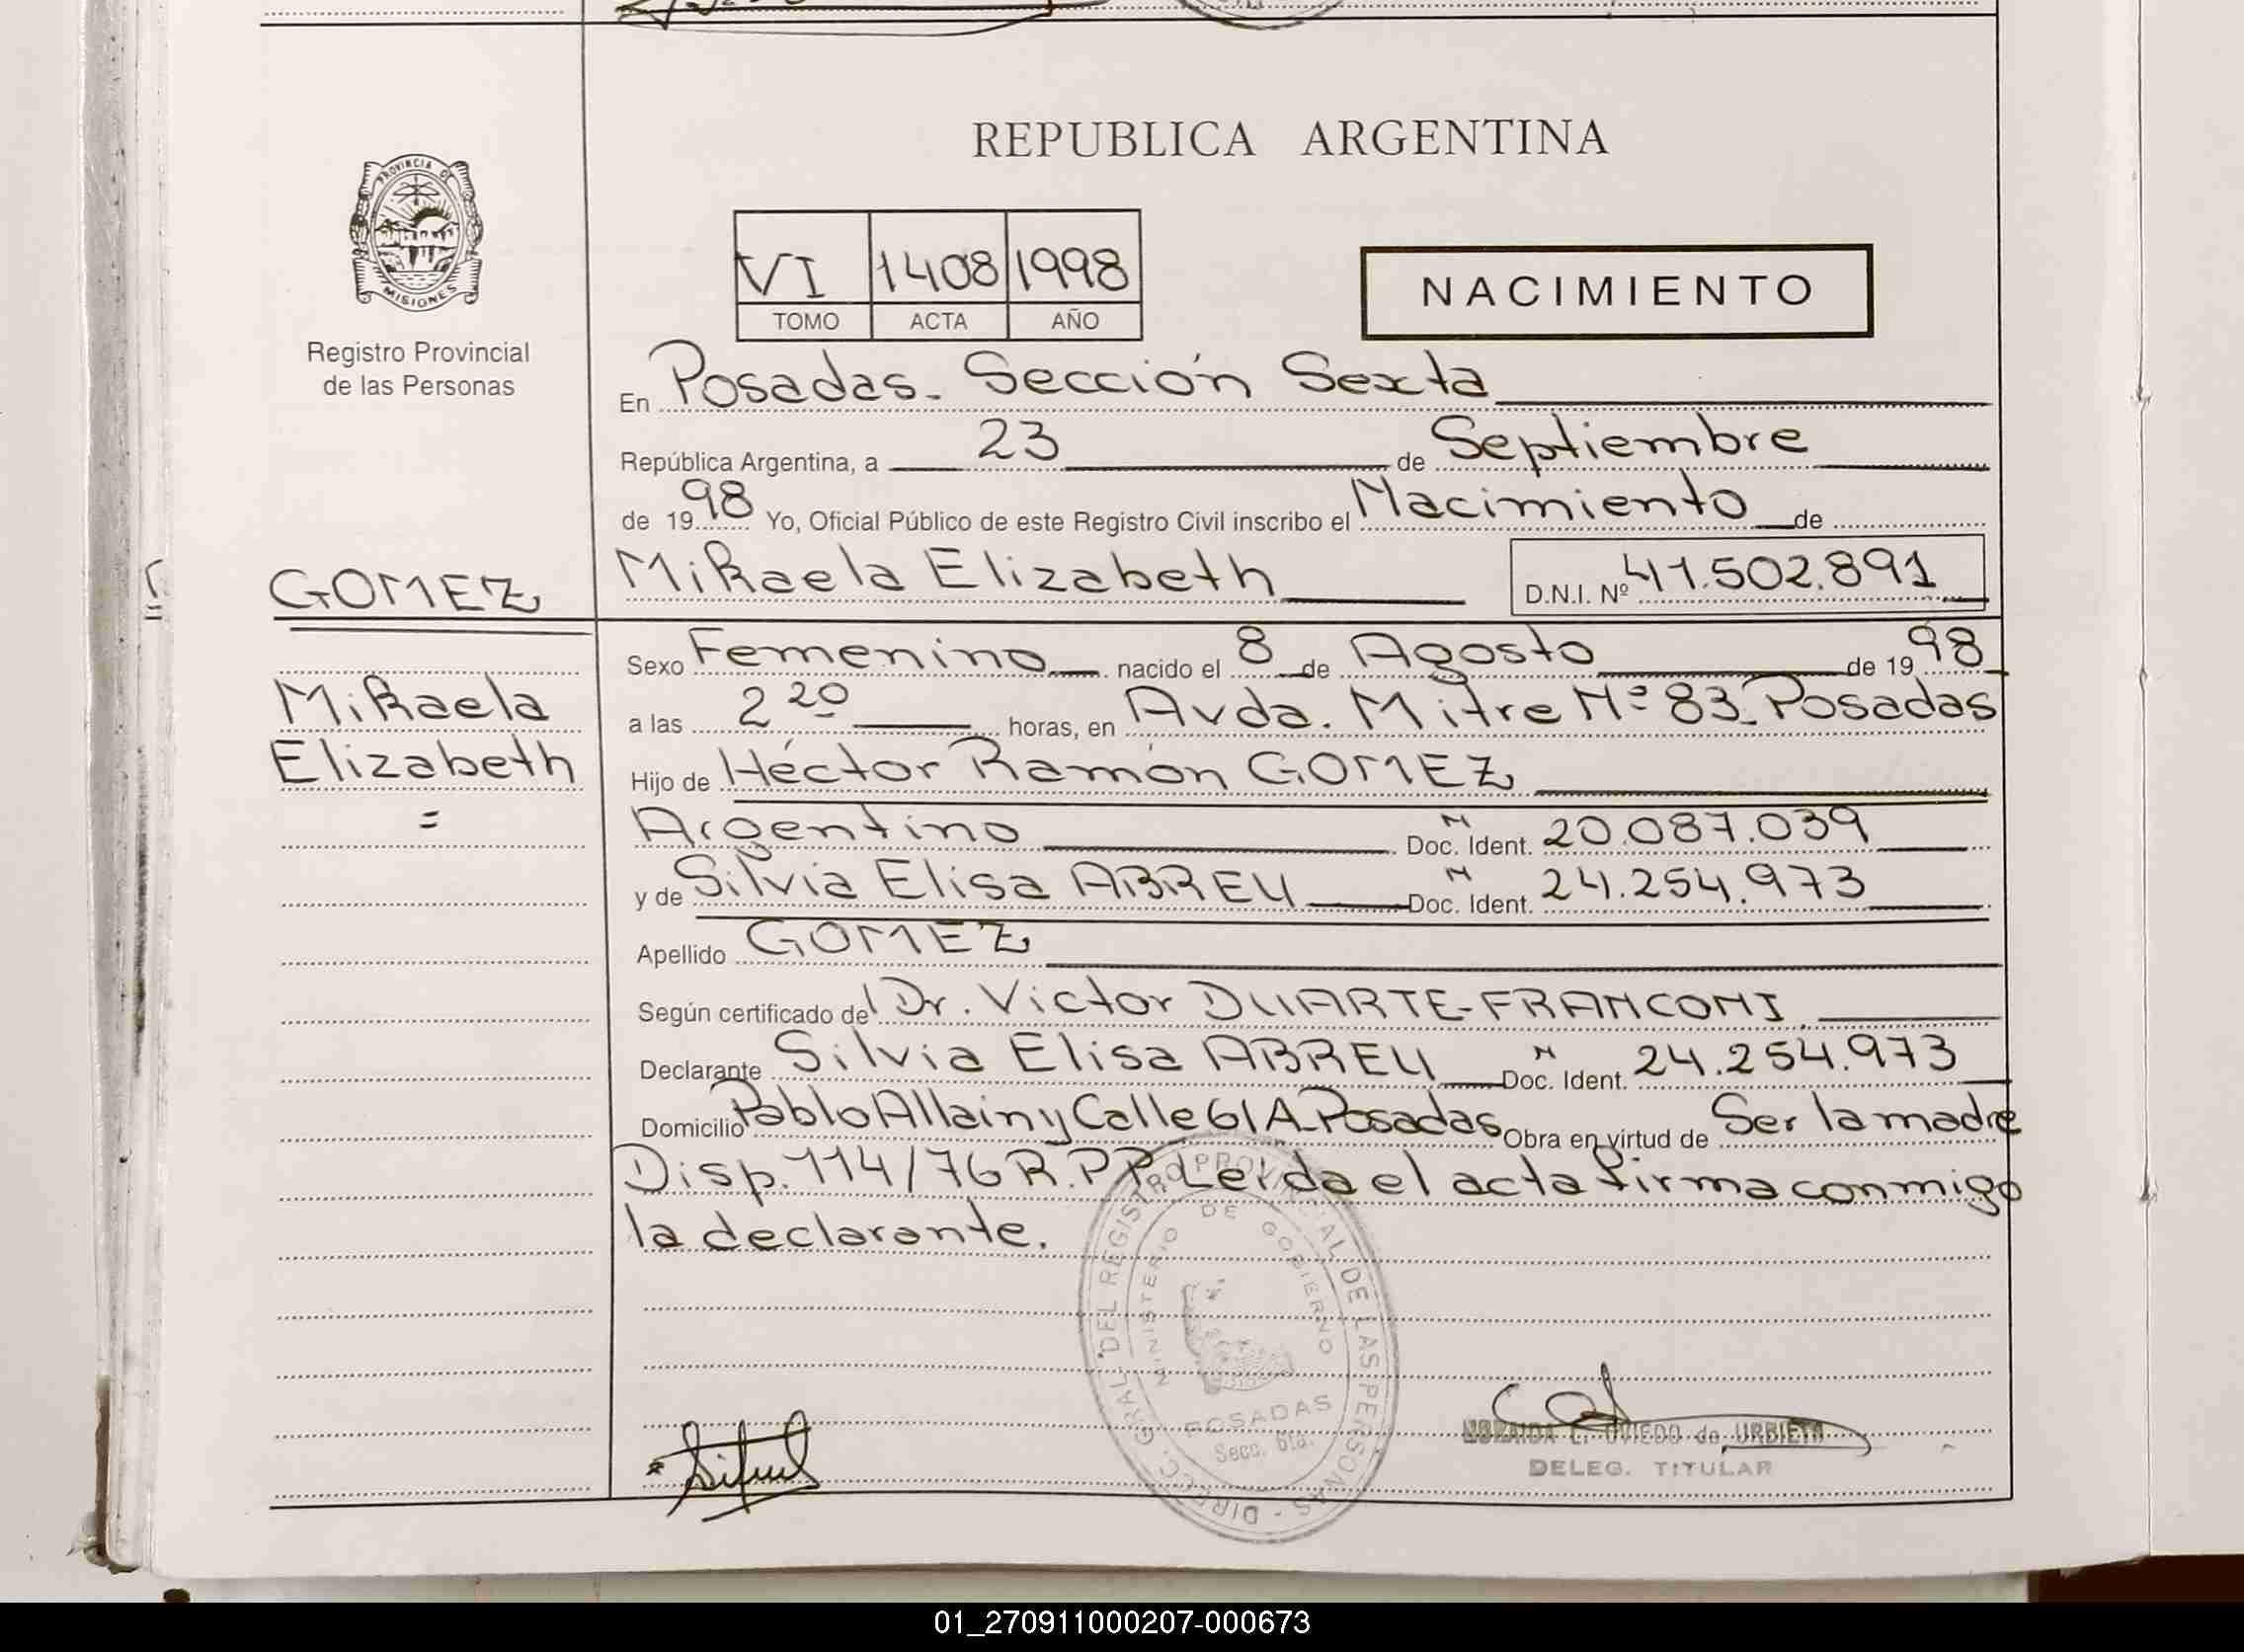 REPUBLICA ARGENTINA
PROVINCIA DE
MISIONES
Registro Provincial
de las Personas
VI 1408 1998
TOMO ACTA AÑO
NACIMIENTO
En Posadas. Sección Sexta
República Argentina, a 23 de Septiembre
de 1998 Yo, Oficial Público de este Registro Civil inscribo el Nacimiento de
GOMEZ
Mikaela Elizabeth D.N.I. Nº 41.502.891
Sexo Femenino nacido el 8 de Agosto de 1998
Mikaela
Elizabeth
=
a las 2 20 horas, en Avda. Mitre Nº 83_Posadas
Hijo de Héctor Ramón GOMEZ
Argentino Doc. N Ident. 20.087.039
y de Silvia Elisa ABREU Doc. N Ident. 24.254.973
Apellido GOMEZ
Según certificado del Dr. Victor DUARTE-FRANCONI
Declarante Silvia Elisa ABREU Doc. N Ident. 24.254.973
Domicilio Pablo Allain y Calle 61 A_Posadas Obra en virtud de Ser la madre
Disp. 114/76 R.P.P. Leída el acta firma conmigo
la declarante.
DIRECC. GRAL. DEL REGISTRO PROVINCIAL DE LAS PERSONAS -
MINISTERIO DE GOBIERNO
POSADAS
Secc. 6ta.
C. OVIEDO de URBIETA
DELEG. TITULAR
01_270911000207-000673